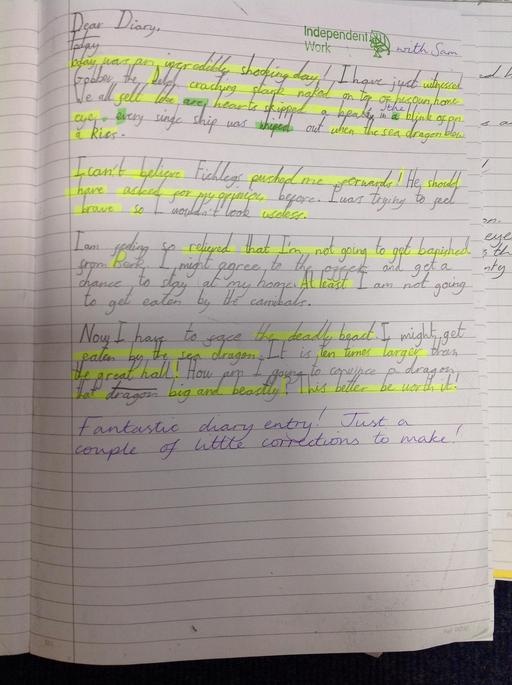 Dear Diary,
Independent
Work
with Sam
Today
today was an incredibly shocking day! I have just witnessed
Gobber the Belch crashing stark naked on top of his own home
We all felt like are hearts skipped a beat, in a blink of an
the
eye, every singe ship was whiped out when the sea dragon blew
a kiss.
I can't believe Fishlegs pushed me forwards! He should
have asked for my opinion before. I was trying to feel
brave so I wouldn't look useless.
I am feeling so relieved that I'm not going to get banished
from Berk. I might agree to the and get a
chance to stay at my home. At least I am not going
to get eaten by the canibals.
Now I have to face the deadly beast I might get
eaten by the sea dragon. It is ten times larger than
the great hall! How am I going to convince a dragon
that dragon big and beastly? This better be worth it!
Fantastic diary entry! Just a
couple of little corrections to make!